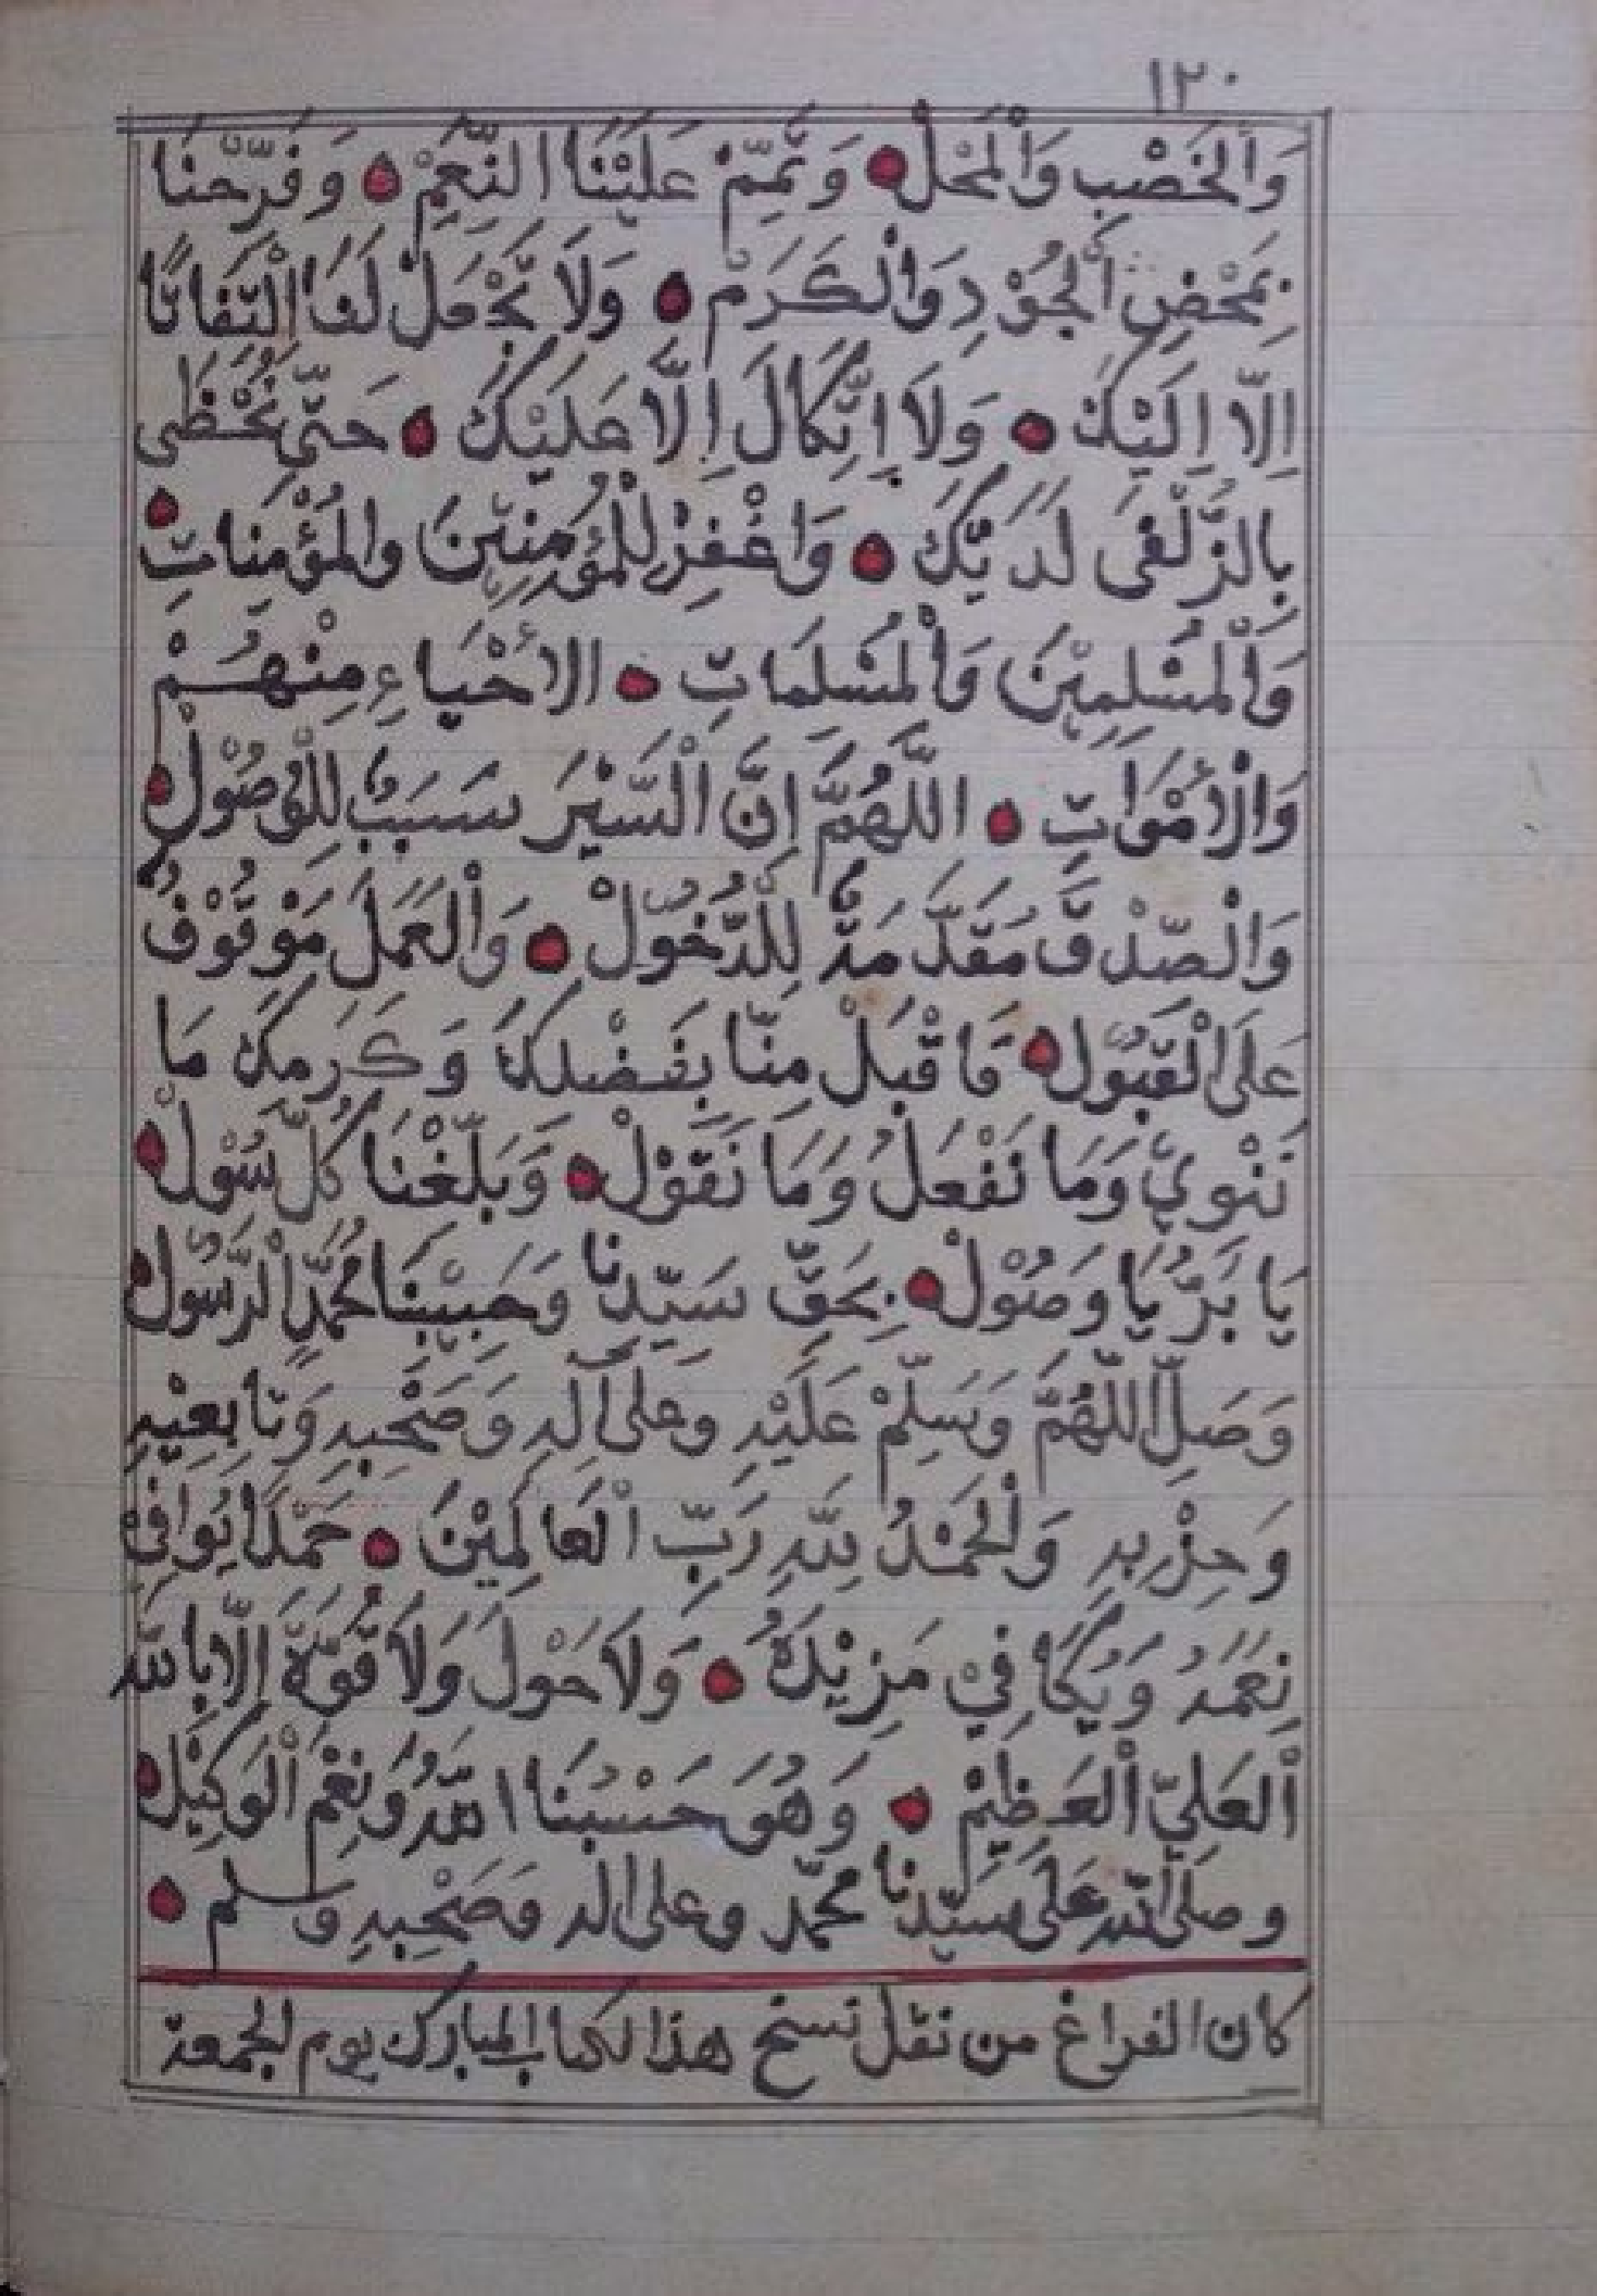 ١٢٠
وَالْخَصْبِ وَالْمَحْلْ وَتَمِّمْ عَلَيْنَا النِّعَمْ وَفَرِّحْنَا
بِمَحْضِ الْجُوْدِ وَالْكَرَمْ وَلَا تَجْعَلْ لَنَا الْتِفَاتًا
اِلَّا اِلَيْكَ وَلَا اِتِّكَالَ اِلَّا عَلَيْكَ حَتَّى نَحْظَى
بِالزُّلْفَى لَدَيْكَ وَاغْفِرْ لِلْمُؤْمِنِيْنَ والْمُؤْمِنَاتِ
وَالْمُسْلِمِيْنَ وَالْمُسْلِمَاتِ الأَحْيَاءِ مِنْهُمْ
وَالْأَمْوَاتِ اللَّهُمَّ اِنَّ الْسَّيْرَ سَبَبٌ لِلْوُصُوْلْ
وَالْصِّدْقَ مُقَدِّمَةٌ لِلدُّخُوْلْ وَالْعَمَلُ مَوْقُوْفٌ
عَلَى الْقَبُوْلْ فَاقْبَلْ مِنَّا بِفَضْلِكَ وَكَرَمِكَ مَا
نَنْوِيْ وَمَا نَفْعَلُ وَمَا نَقُوْلْ وَبَلِّغْنَا كُلَّ سُوْلْ
يَا بَرُّ يَا وَصُوْلْ بِحَقِّ سَيِّدِنَا وَحَبِيْبِنَا مُحَمَّدٍ الْرَّسُوْلْ
وَصَلِّ اللَّهُمَّ وَسَلِّمْ عَلَيْهِ وعلى آلِهِ وَصَحْبِهِ وَتَابِعِيْهِ
وَحِزْبِهِ وَالْحَمْدُ لِلّهِ رَبِّ الْعَالَمِيْنَ حَمْدًا يُوَافِيْ
نِعَمَهُ وَيُكَافِيْ مَزِيْدَهُ وَلَا حَوْلَ وَلَا قُوَّةَ اِلَّا بِاللّه
الْعَلِيِّ الْعَظِيْمْ وَهُوَ حَسْبُنَا اللّهُ وَنِعْمَ الْوَكِيْلْ
وصَلَّى اللّه عَلَى سَيِّدِنَا محمّد وعلى اله وَصَحْبِهِ وسلم
كان الفراغ من نقل نسخ هذا الكتاب المبارك يوم الجمعة